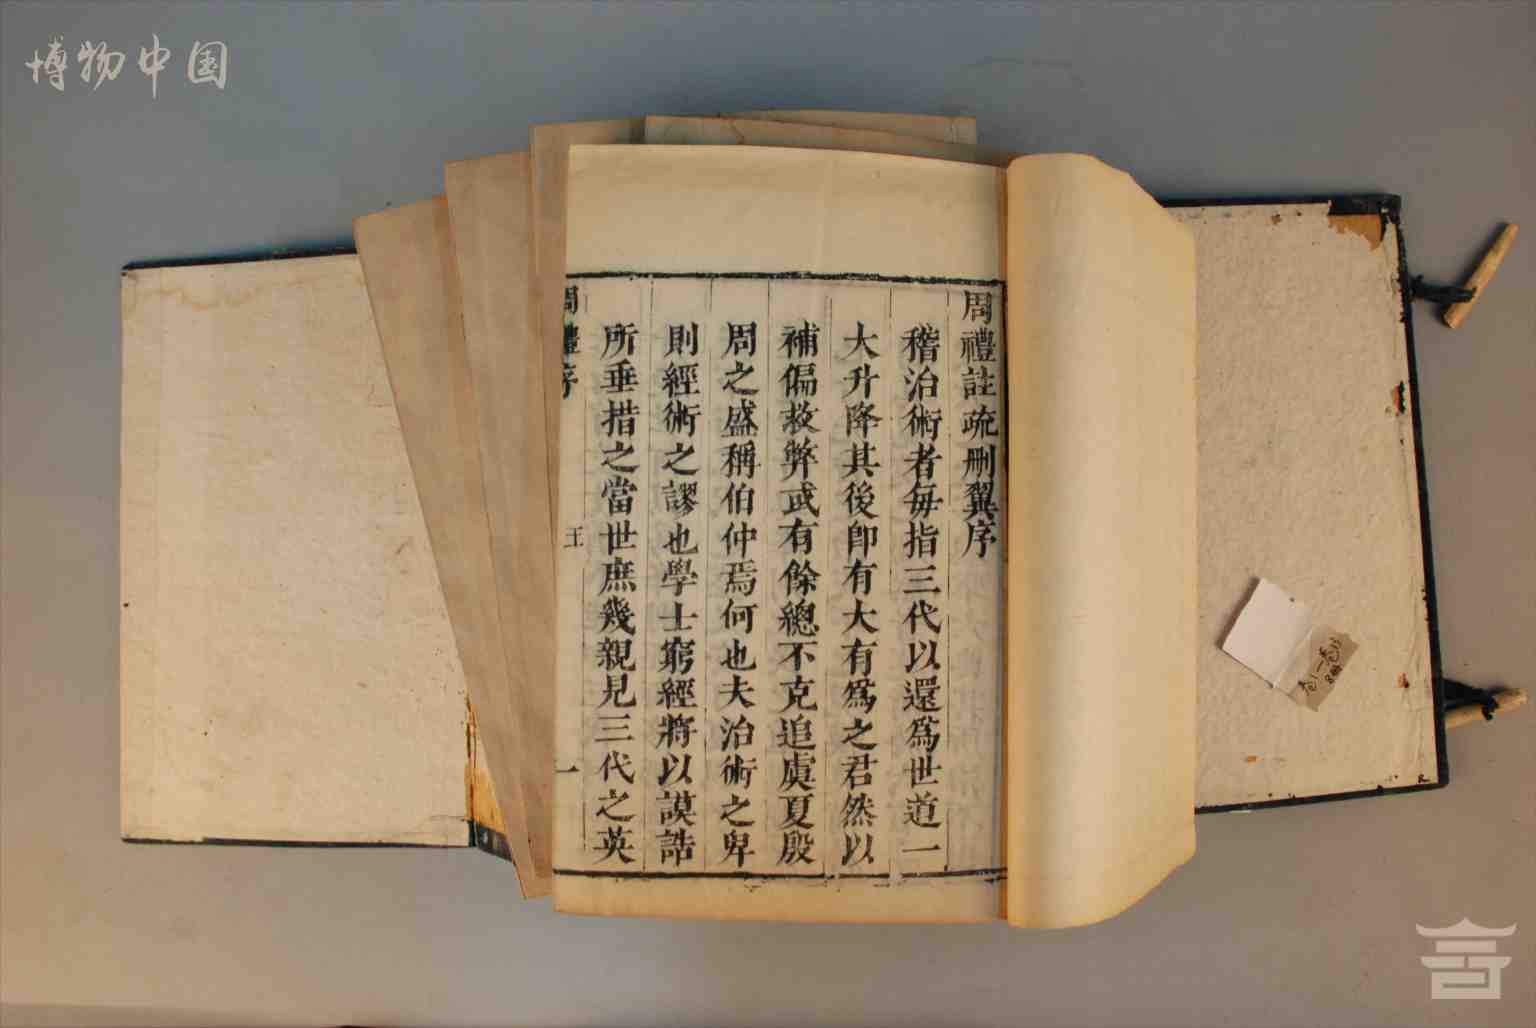 博物中国
周禮註疏刪翼序
稽治術者每指三代以還爲世道一
大升降其後即有大有爲之君然以
補偏救弊或有餘總不克追虞夏殷
周之盛稱伯仲焉何也夫治術之卑
則經術之謬也學士窮經將以謨誥
所垂措之當世庶幾親見三代之英
周禮序
王
一